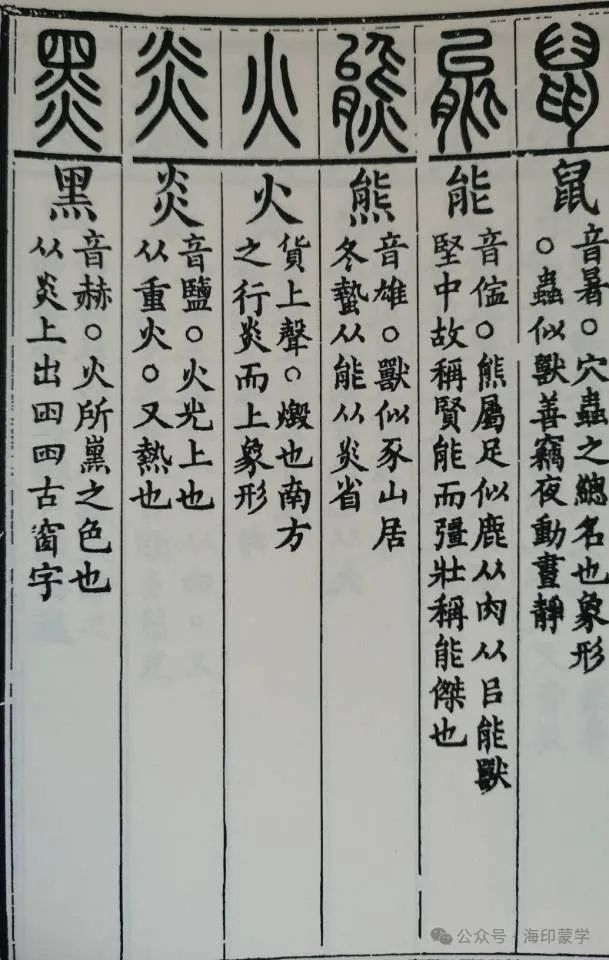 鼠
鼠
音暑○穴蟲之緫名也象形
○蟲似獸善竊夜動晝靜
能
能
音儜○熊屬足似鹿从肉从㠯能獸
堅中故稱賢能而彊壯稱能傑也
熊
熊
音雄○獸似豕山居
冬蟄从能从炎省
火
火
貨上聲○燬也南方
之行炎而上象形
炎
炎
音鹽○火光上也
从重火○又熱也
黑
黑
音赫○火所熏之色也
从炎上出囧囧古窗字
公众号·海印蒙学